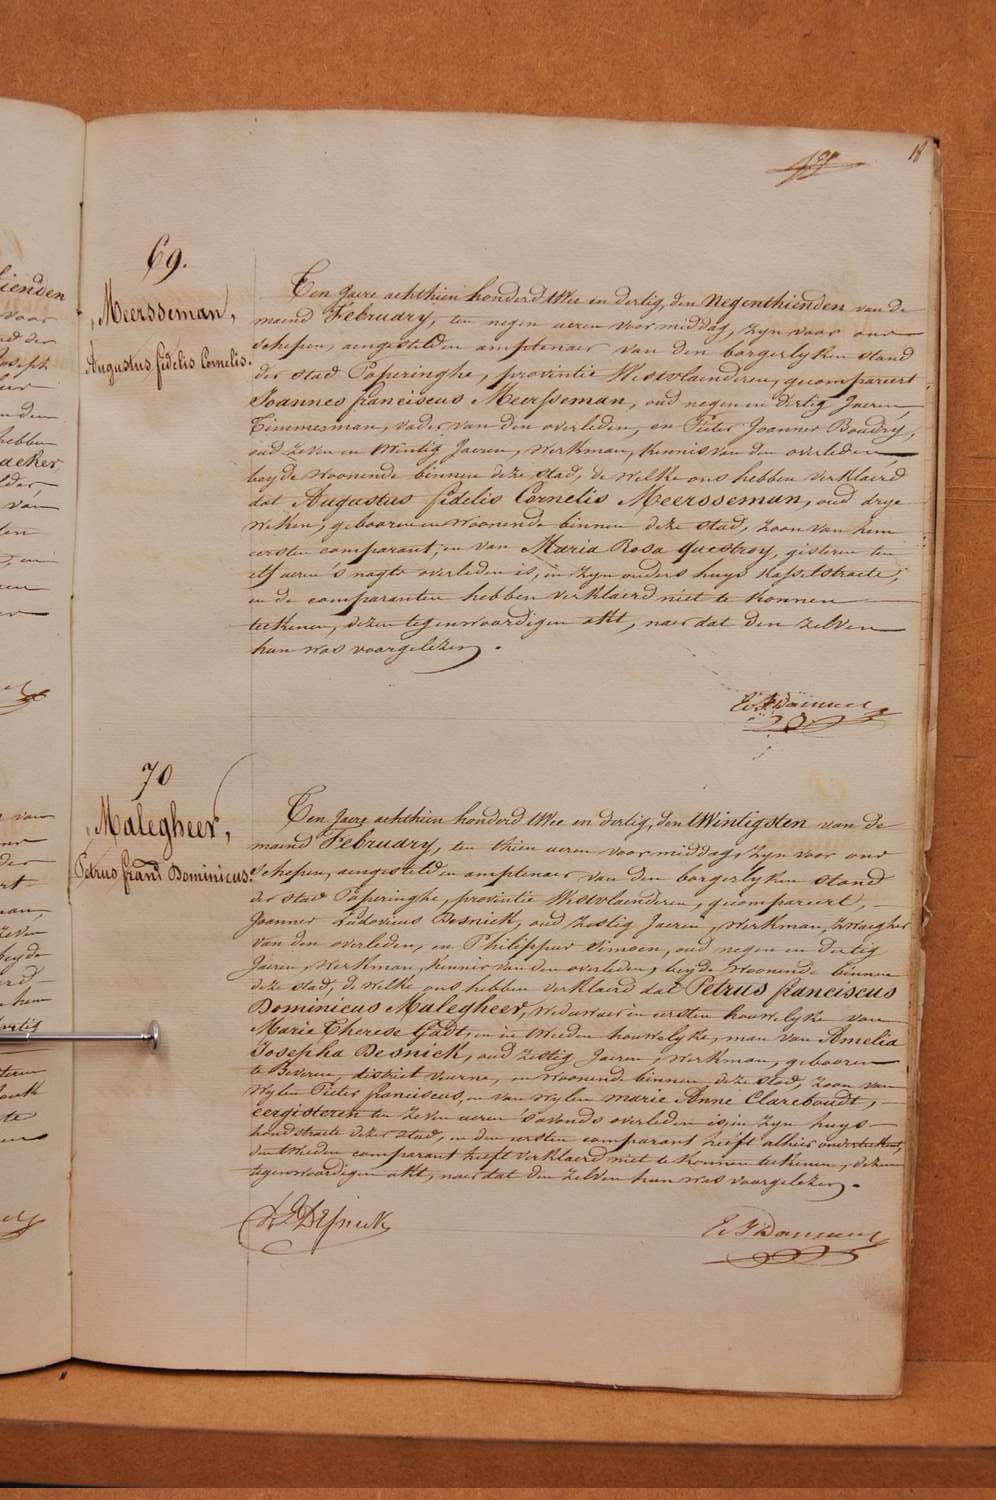 18
69.
Meersseman,
Augustus fidelis Cornelis.
Ten Jaere achthien honderd twee en dertig, den Negenthienden van de
maend February, ten negen ueren voormiddag, zyn voor ons
schepen, aengestelden amptenaer van den borgerlyken stand
der stad Poperinghe, provintie Westvlaenderen, gecompareert
Joannes franciscus Meersseman, oud negen en dertig Jaeren,
Timmerman, vader van den overleden, en Pieter Joannes Boudry,
oud zeven en twintig Jaeren, Werkman, kennis van den overleden
beyde woonende binnen deze stad, de welke ons hebben verklaerd
dat Augustus fidelis Cornelis Meersseman, oud drye
weken, gebooren en woonende binnen deze stad, zoon van hem
eersten comparant, en van Maria Rosa Questroy, gisteren ten
elf ueren 's nagts overleden is, in zyn ouders huys Kasselstraete,
en de comparanten hebben verklaerd niet te konnen
teekenen, dezen tegenwoordigen akt, naer dat den zelven
hun was voorgelezen.
70
Malegheer,
Petrus frans Dominicus.
Ten Jaere achthien honderd twee en dertig, den twintigsten van de
maend February, ten thien ueren voormiddag, zyn voor ons
schepen, aengestelden amptenaer van den borgerlyken stand
der stad Poperinghe, provintie Westvlaenderen, gecompareert,
Joannes Ludovicus Desnick, oud zestig Jaeren, Werkman, zwaegher
van den overleden, en Philippus Simoen, oud negen en dertig
Jaeren, Werkman, kennis van den overleden, beyde woonende binnen
deze stad, de welke ons hebben verklaerd dat Petrus franciscus
Dominicus Malegheer, Weduwaer in eersten houwelyke van
Marie Therese Gadt, en in tweeden houwelyke, man van Amelia
Josepha Desnick, oud zestig Jaeren, Werkman, gebooren
te Beveren, district Veurne, en woonende binnen deze stad, zoon van
Wylen Pieter franciscus, en van wylen Marie Anne Clareboudt,
eergisteren ten zeven ueren 's avonds overleden is, in zyn huys
hondstraete dezer stad, en den eersten comparant heeft alhier onderteekent,
den tweeden comparant heeft verklaerd niet te konnen teekenen, dezen
tegenwoordigen akt, naer dat den zelven hun was voorgelezen.